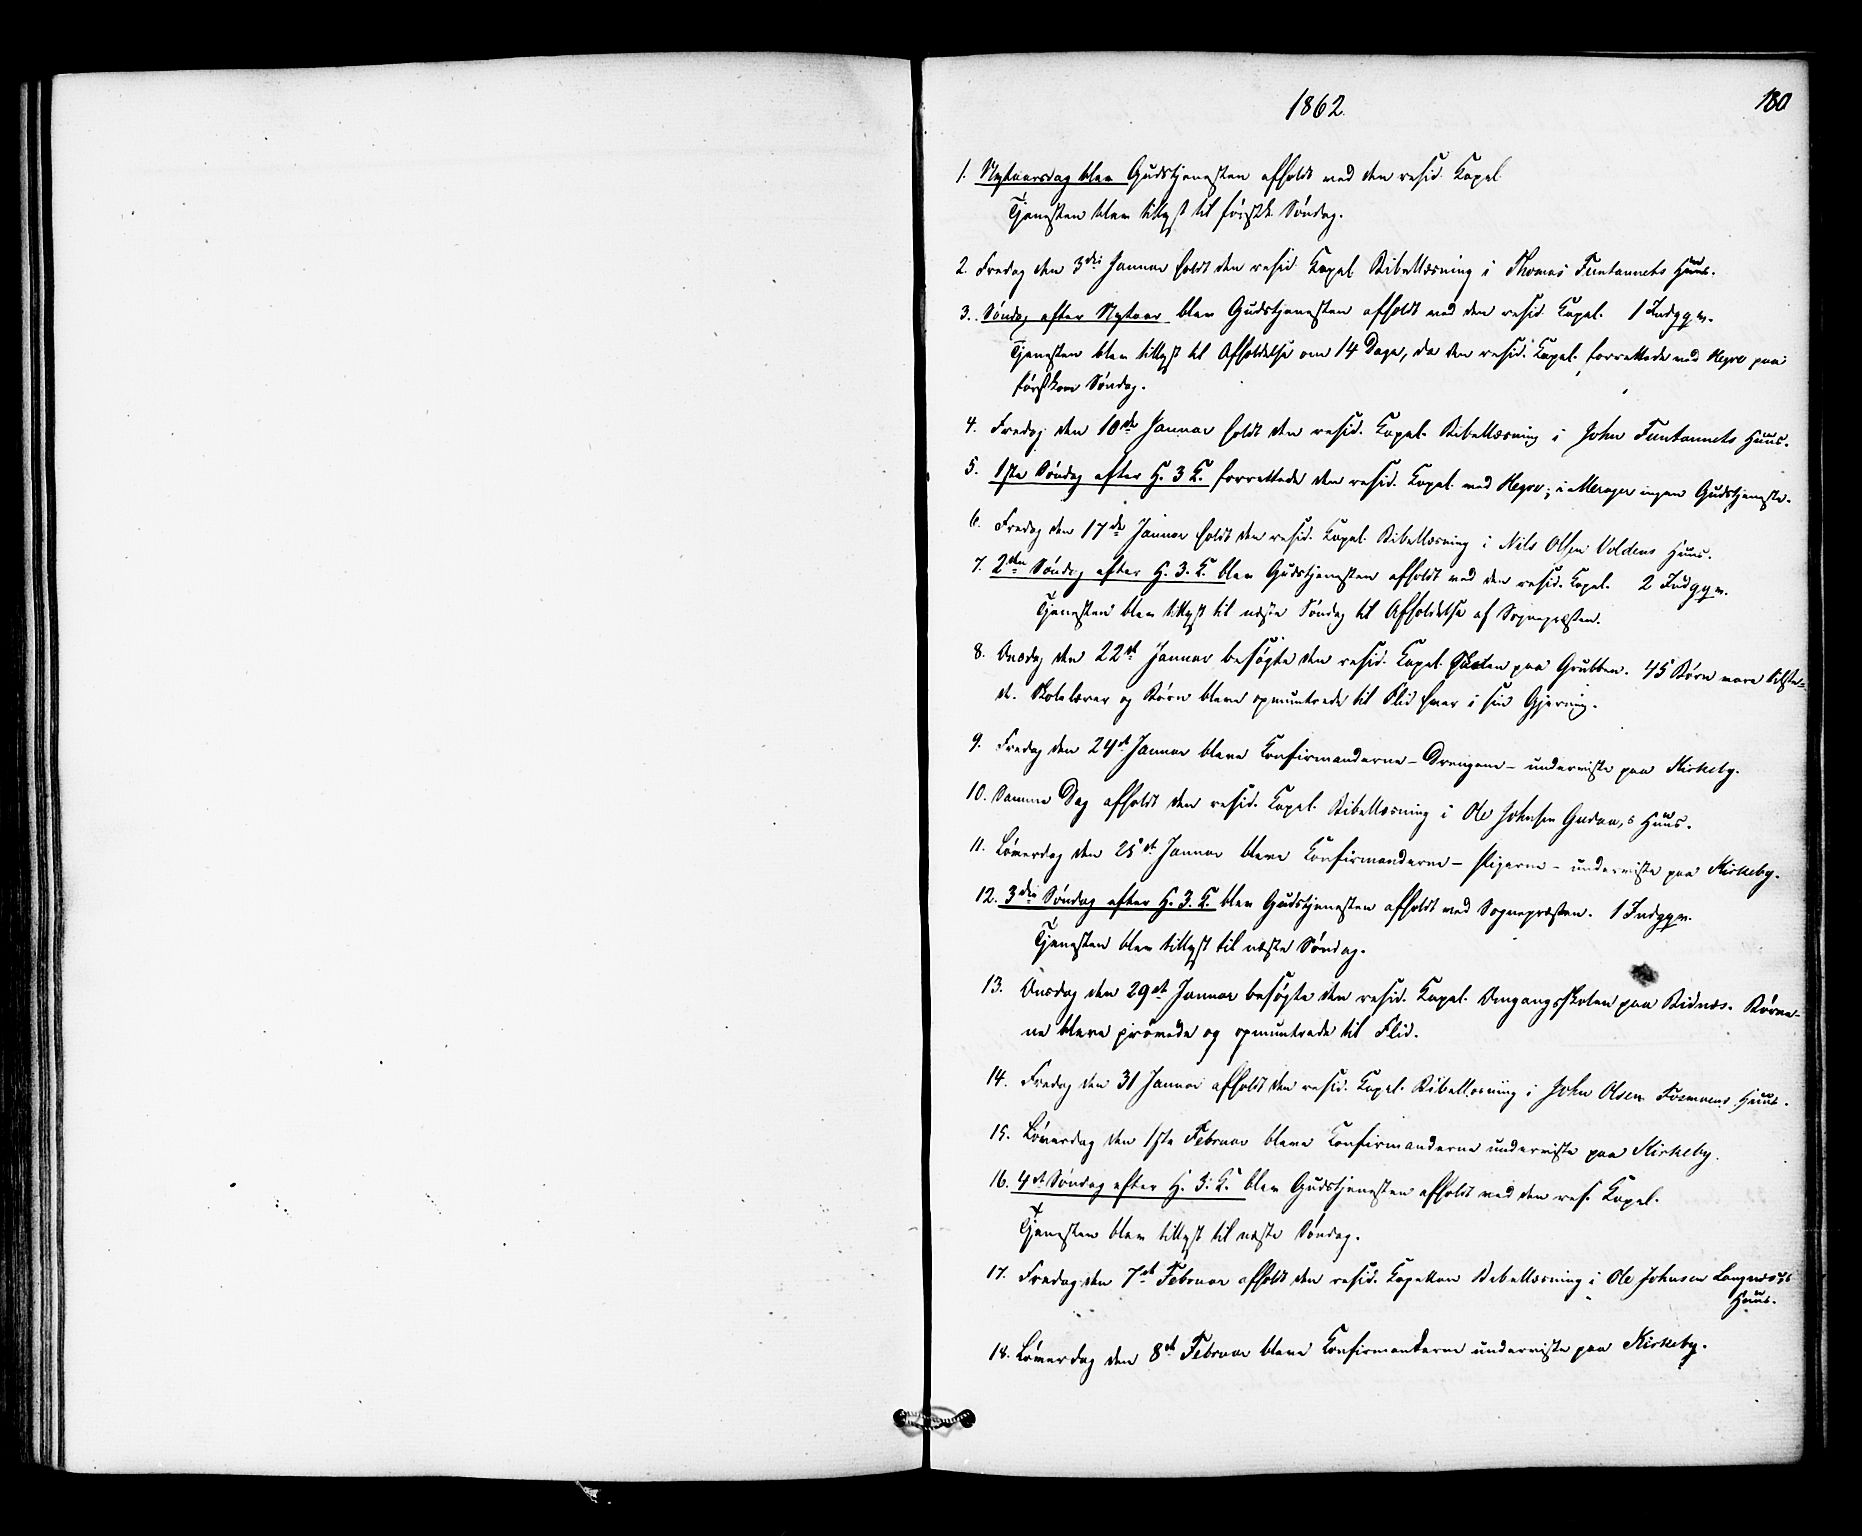 1862.
180
1. Nytaarsdag blev Gudstjenesten afholdt ved den resid. Kapel.
Tjenesten blev tillyst til førstk. Søndag.
2. Fredag den 3die Januar holdt den resid. Kapel. Bibellæsning i Thomas Funtaunets Huus.
3. Søndag efter Nytaar blev Gudstjenesten afholdt ved den resid. Kapel. 1 Indggv.
Tjenesten blev tillyst til Afholdelse om 14 Dage, da den resid. Kapel. forrettede ved Hegre paa
førstkom Søndag.
4. Fredag den 10de Januar holdt den resid. Kapel. Bibellæsning i John Funtaunets Huus.
5. 1ste Søndag efter H. 3 K. forrettede den resid. Kapel. ved Hegre; i Merager ingen Gudstjeneste.
6. Fredag den 17de Januar holdt den resid. Kapel. Bibellæsning i Nils Olsen Voldens Huus.
7. 2den Søndag efter H. 3. K. blev Gudstjenesten afholdt ved den resid. Kapel. 2 Indggv.
Tjenesten blev tillyst til næste Søndag til Afholdelse af Sognepræsten.
8. Onsdag den 22de Januar besøgte den resid. Kapel. Skolen paa Grubben. 45 Børn vare tilste-
de. Skolelærer og Børn bleve opmuntrede til Flid hver i sin Gjerning.
9. Fredag den 24de Januar bleve Konfirmanderne – Drengene – underviste paa Kirkeby.
10. Samme Dag afholdt den resid. Kapel. Bibellæsning i Ole Johnsen Gudaa,s Huus.
11. Løverdag den 25de Januar bleve Konfirmanderne – Pigerne – underviste paa Kirkeby.
12. 3die Søndag efter H. 3. K. blev Gudstjenesten afholdt ved Sognepræsten. 1 Indggv.
Tjenesten blev tillyst til næste Søndag.
13. Onsdag den 29de Januar besøgte den resid. Kapel. Omgangsskolen paa Bidnæs. Børne-
ne bleve prøvede og opmuntrede til Flid.
14. Fredag den 31 Januar afholdt den resid. Kapel. Bibellæsning i John Olsen Fosmoens Huus.
15. Løverdag den 1ste Februar bleve Konfirmanderne underviste paa Kirkeby.
16. 4de Søndag efter H. 3. K. blev Gudstjenesten afholdt ved den res. Kapel.
Tjenesten blev tillyst til næste Søndag.
17. Fredag den 7de Februar afholdt den resid. Kapellan Bibellæsning i Ole Johnsen Langnæs's
Huus.
18. Løverdag den 8de Februar bleve Konfirmanderne underviste paa Kirkeby.